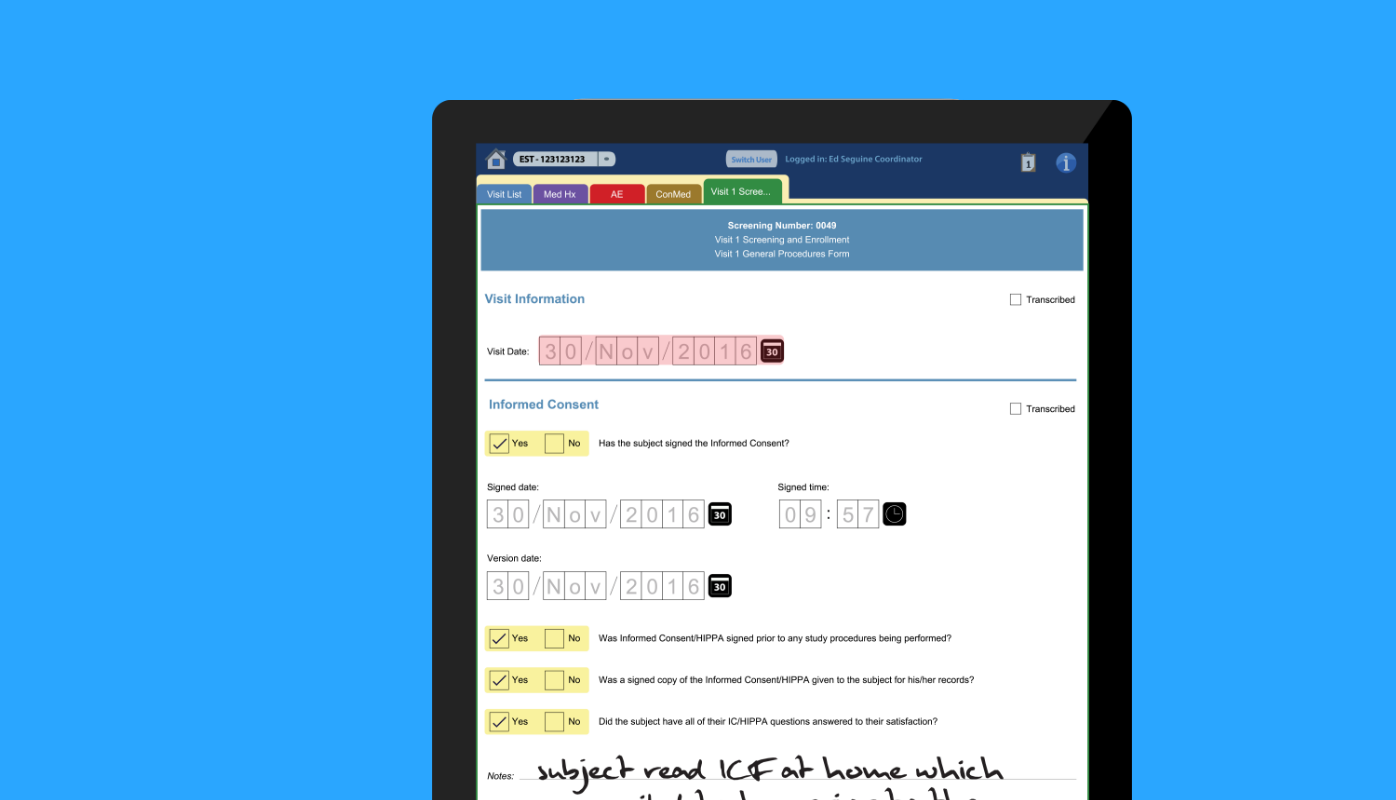 EST - 123123123
Switch User
Logged in: Ed Seguine Coordinator
1
i
Visit List Med Hx AE ConMed Visit 1 Scree...
Screening Number: 0049
Visit 1 Screening and Enrollment
Visit 1 General Procedures Form
Visit Information
Transcribed
Visit Date: 30/Nov/2016 30
Informed Consent
Transcribed
Yes No Has the subject signed the Informed Consent?
Signed date: Signed time:
30/Nov/2016 30 09:57
Version date:
30/Nov/2016 30
Yes No Was Informed Consent/HIPPA signed prior to any study procedures being performed?
Yes No Was a signed copy of the Informed Consent/HIPPA given to the subject for his/her records?
Yes No Did the subject have all of their IC/HIPPA questions answered to their satisfaction?
Notes: subject read ICF at home which